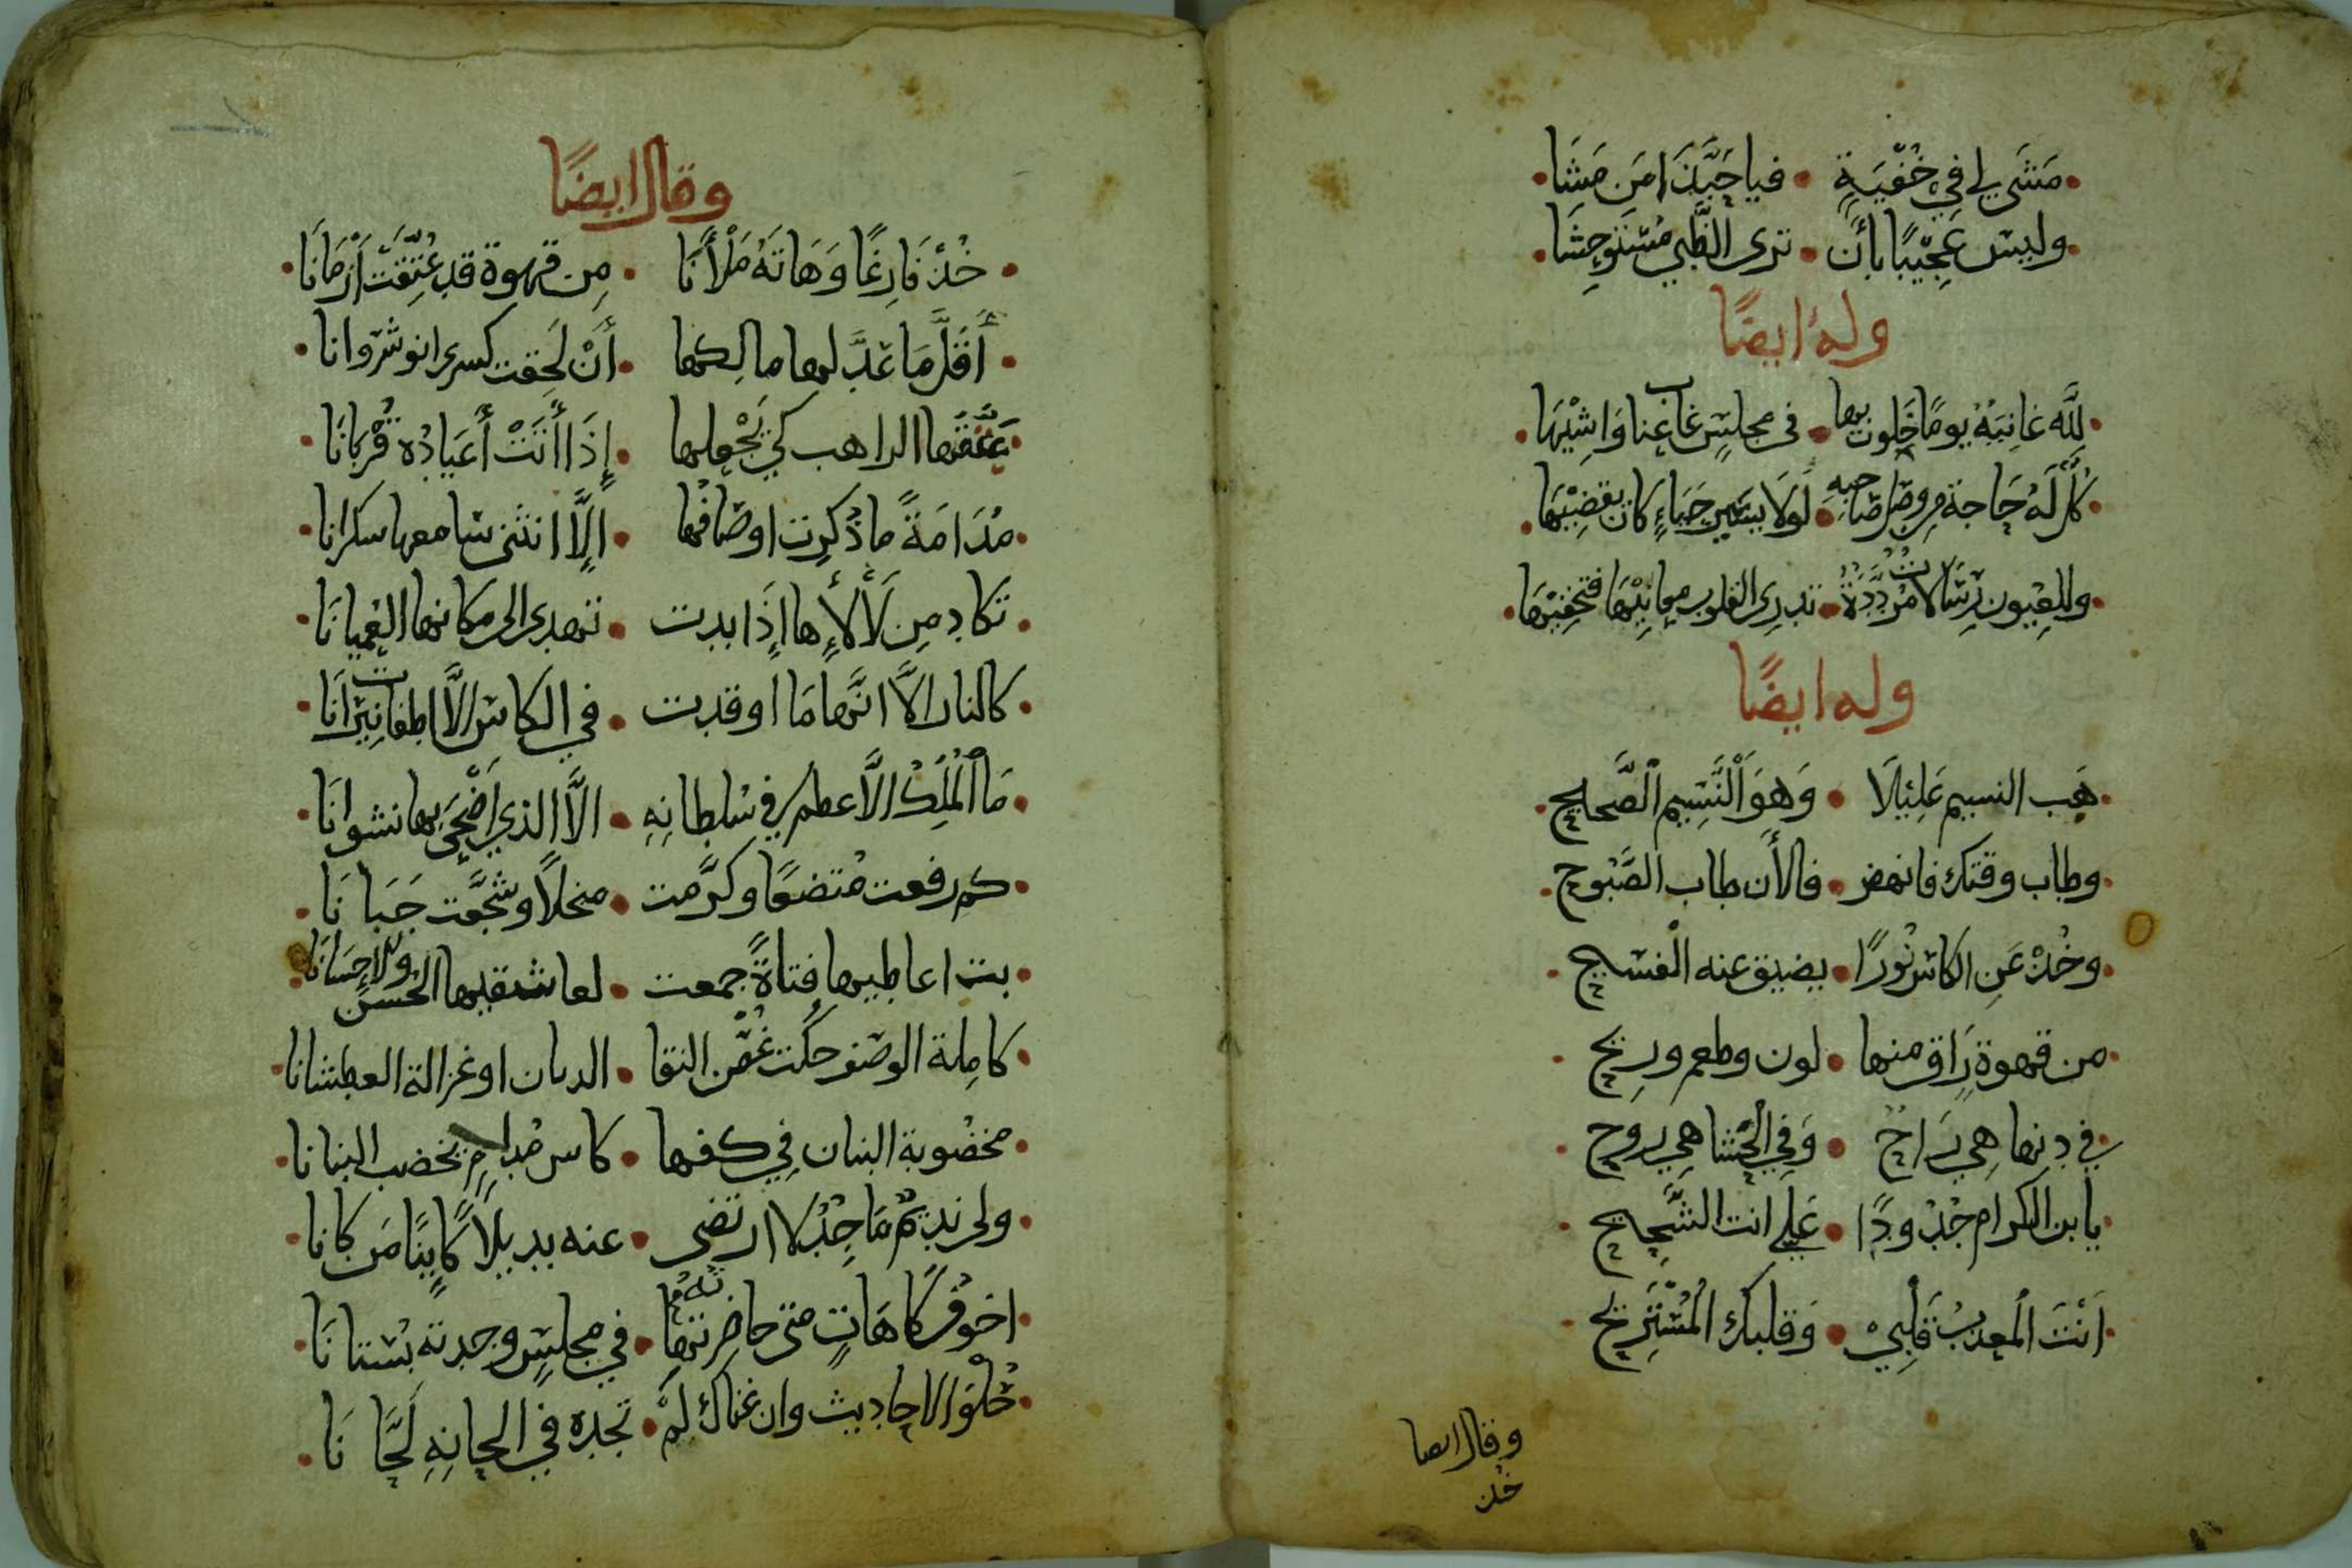 مَشَى لي في خُفْيَةٍ • فيا حَبَّذَا مَن مَشَا
وليس عَجِيْبًا بأن • ترى الظَّبي مُسْتَوحِشَا
وله ايضًا
لِلَّهِ غانِيَةٌ يومًا خَلَوت بها • في مجلسٍ غاب عنا وَاشِيْهَا
كُلٌّ لَهُ حَاجة من وصل صَاحبه • لولا يسير حَيَاءٍ كان يقضِيْهَا
وللعِيون رِسَالات مُرَدَّدَةٌ • تدرِى القلوب معانِيْهَا فتخفِيْهَا
وله ايضًا
هَب النسيم عَلِيْلَا • وَهوَ النَّسِيم الصَّحيح
وطاب وقتك فانهض • فالأن طاب الصَّبُوح
وخُذْ عَنِ الكاس نُورًا • يضيق عنه الفسيح
من قهوة رَاق منها • لون وطعم ورِيح
في دنها هِي رَاحٌ • وَفي الحْشَا هِي روح
يا بن الكرام جُدْ ودًا • عَلي انت الشَّحِيح
اَنْتَ المعذب قَلْبِيْ • وَقلبك المُسْتَرِيح
وقال ايضا
خذ
وقال ايضًا
خُذْ فَارِغًا وَهَاتَهُ مَلْأَنَا • مِن قهوة قد عُتِّقَتْ أَزْمَانَا
أَقَلّ مَا عَدَّ لها مالِكها • أَنْ لَحِقت كسرى انوشروانا
عَتَّقَها الراهب كي يَجْعلها • إِذَا أَتَتْ أَعيَادُه قُرْبَانَا
مُدَامَةً ما ذُكرِت اوصَافُها • اِلَّا انثنى سَامعها سكرانا
تَكاد مِن لَأْلأِها إِذَا بدت • تهدى الى مكانها العُميانَا
كالنار الَّا انَّها مَا اوقدت • في الكاس الَّا اطفات نِيْرَانَا
مَا المْلَك الأعظم في سْلطانِهِ • الَّا الذي اَضْحَى بها نشوانَا
كم رفعت مْتضعًا وكرَّمت • مبخلًا وشجَّعت جَبَانَا
بت اعاطيها فتاةً جمعت • لعاشقيها الحُسْن والاحِسَانَا
كاملة الوصف حكت غُصْن النقا • الريان او غزالة العطشانا
مخضوبة البنان فِي كفها • كاس مْدامٍ يخضب البنانا
ولى نديمٌ مَاجِدٌ لا ارتضى • عنه بديلًا كَايِنًا مَن كانا
اخوُ فُكَاهَاتٍ متى حاضرته • في مجلسٍ وجدته بُستانَا
حُلْوَ الاحاديث وان غناك لم • تجده في الحانِهِ لَحَّانَا